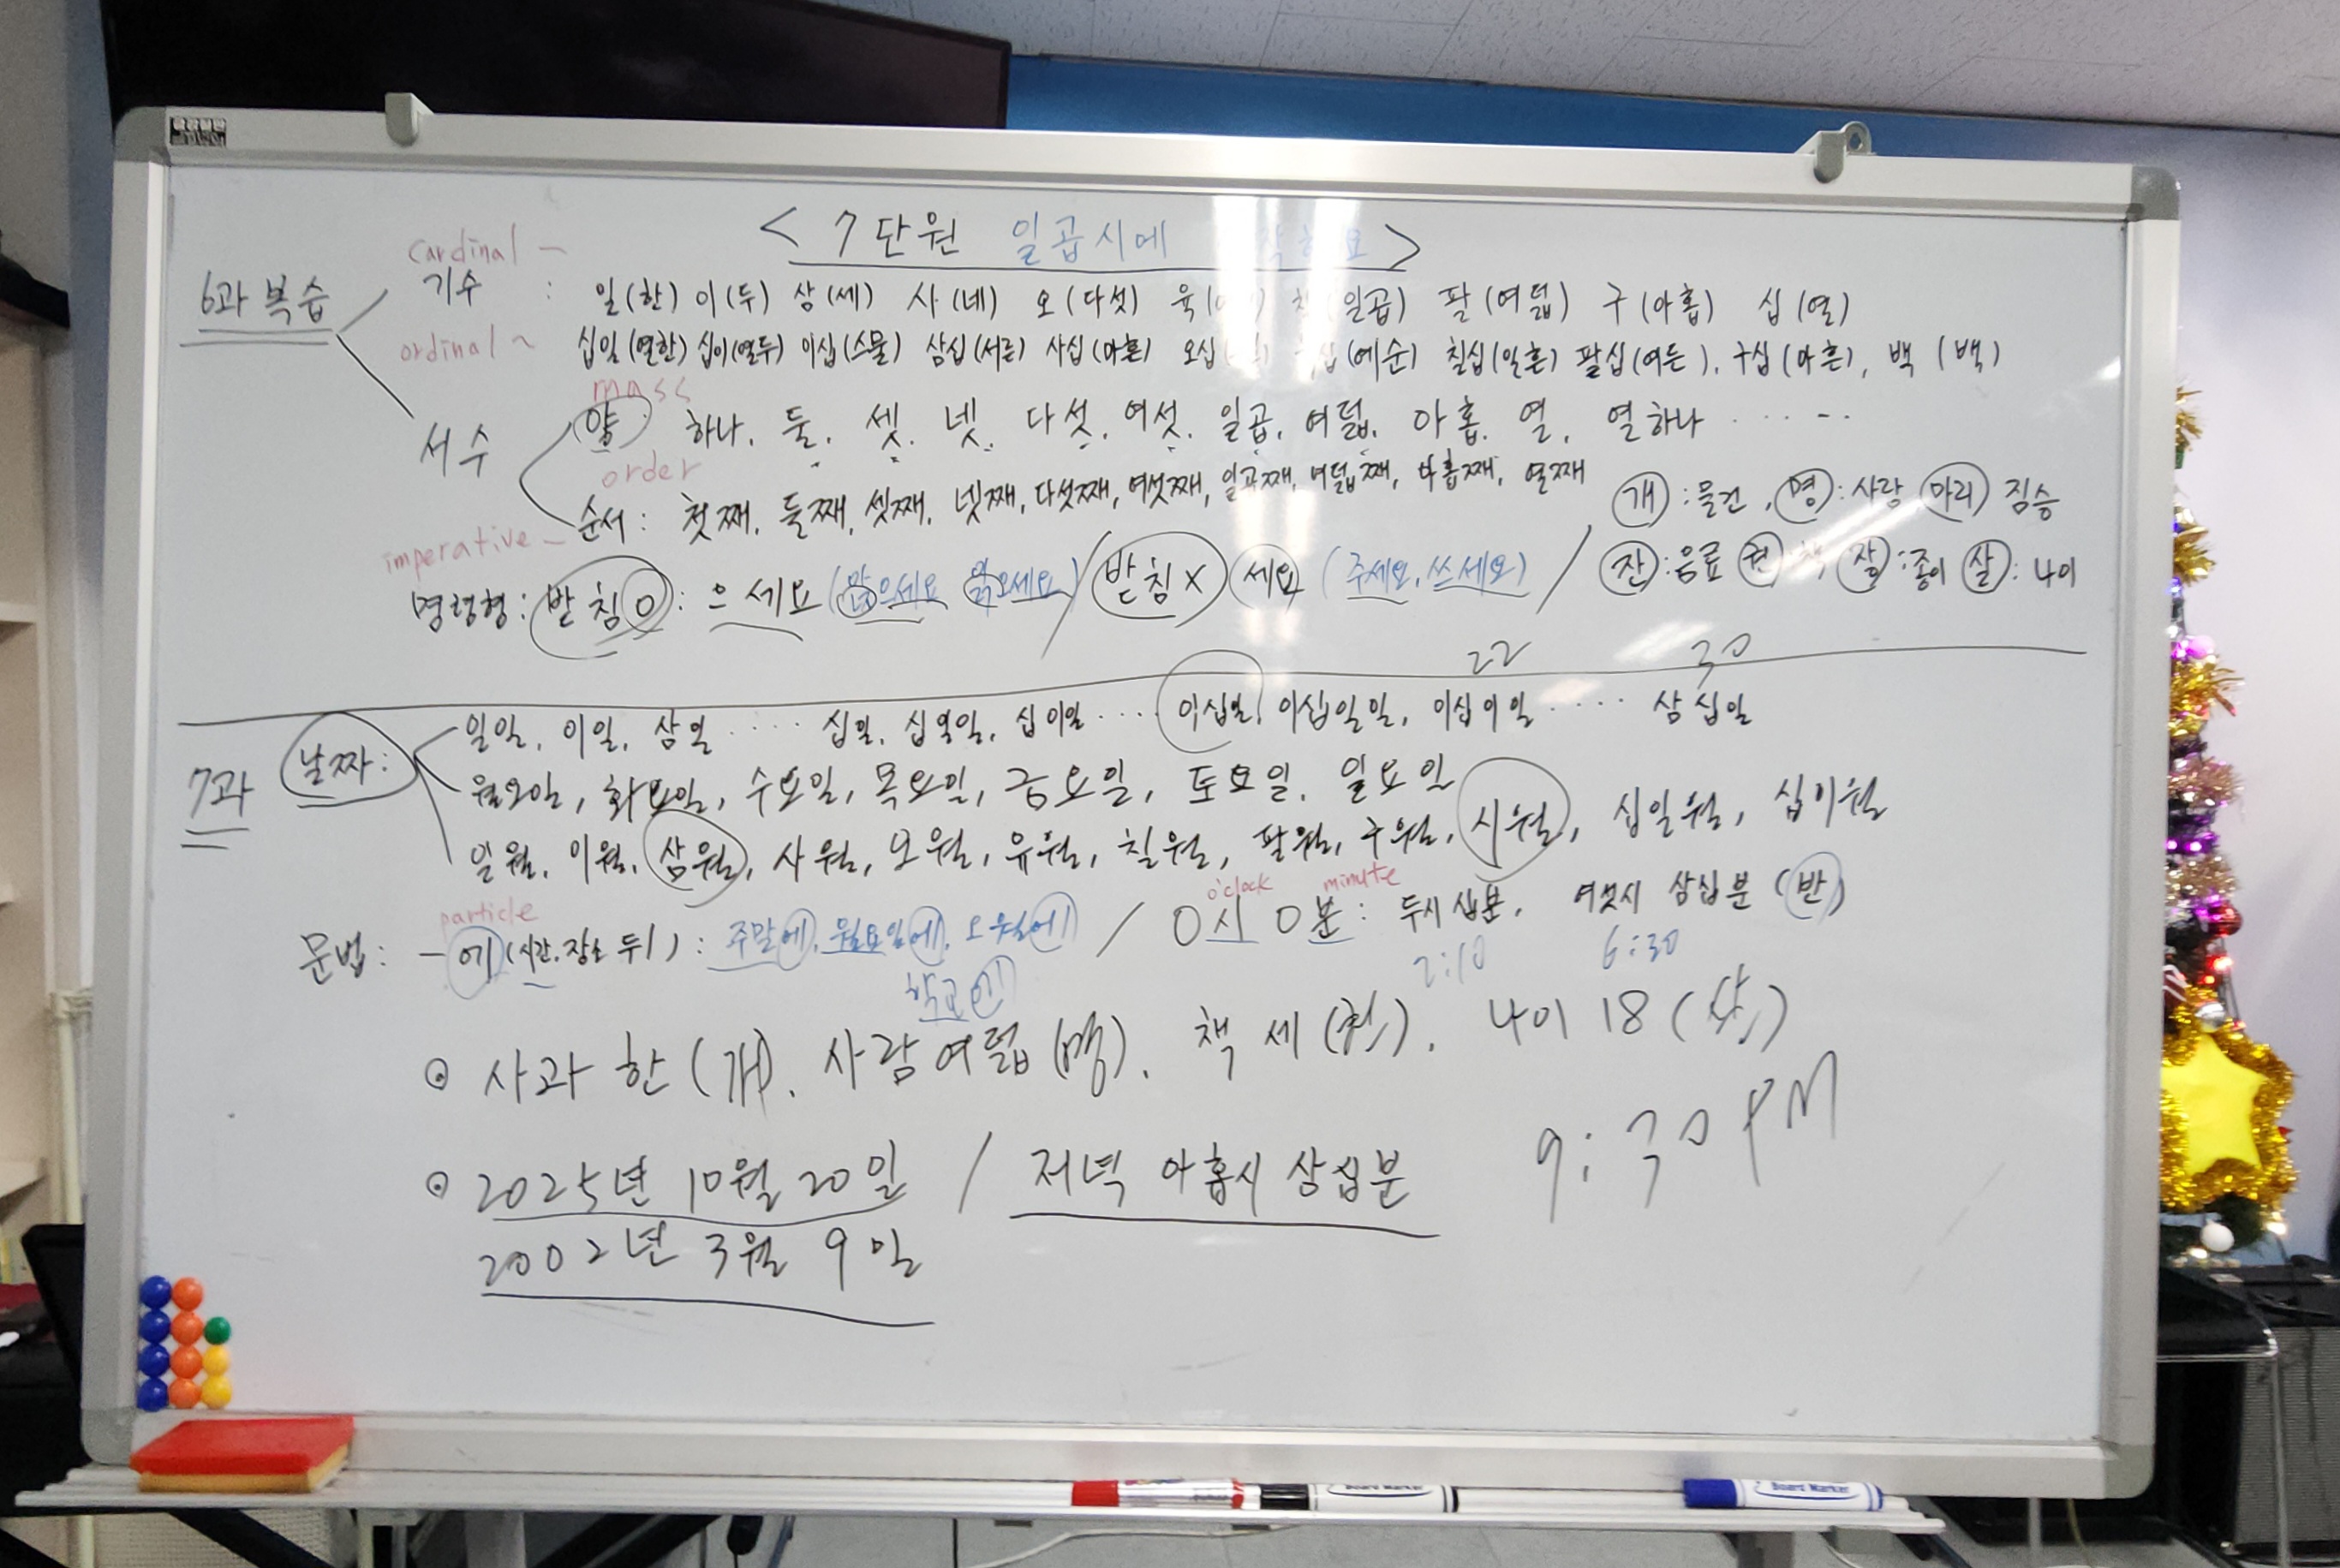 < 7단원 일곱시에 요 >
cardinal ー
6과 복습 기수 : 일(한) 이(두) 상(세) 사(네) 오(다섯) 육( (일곱) 팔(여덟) 구(아홉) 십(열)
ordinal ~
십일(열한) 십이(열두) 이십(스물) 삼십(서른) 사십(마흔) 오십( (예순) 칠십(일흔) 팔십(여든), 구십(아흔), 백 (백)
mass
서수 양 하나, 둘, 셋, 넷, 다섯, 여섯, 일곱, 여덟, 아홉, 열, 열하나 ······
order
순서 : 첫째, 둘째, 셋째, 넷째, 다섯째, 여섯째, 일곱째, 여덟째, 아홉째, 열째
개 : 물건, 명 : 사람, 마리 짐승
잔 : 음료 권 책 장 : 종이 살 : 나이
imperative ー
명령형 : 받침 O : 으세요 ( 읽으세요) / 받침 X 세요 (주세요, 쓰세요) /
22 30
7과 날짜 : 일일, 이일, 삼일 ····· 십일, 십일일, 십이일 ···· 이십일, 이십일일, 이십이일 ····· 삼십일
월요일, 화요일, 수요일, 목요일, 금요일, 토요일, 일요일
일월, 이월, 삼월, 사월, 오월, 유월, 칠월, 팔월, 구월, 시월, 십일월, 십이월
particle o'clock minute
문법 : -에 (시간, 장소 뒤) : 주말에, 월요일에, 오월에 / O시 O분 : 두시 십분, 여섯시 삼십분 (반)
학교에 2:10 6:30
⊙ 사과 한 (개), 사람 여덟 (명), 책 세 (권), 나이 18 (살)
⊙ 2025년 10월 20일 / 저녁 아홉시 삼십분 9:30 PM
2002년 3월 9일
Board Marker
Board Marker